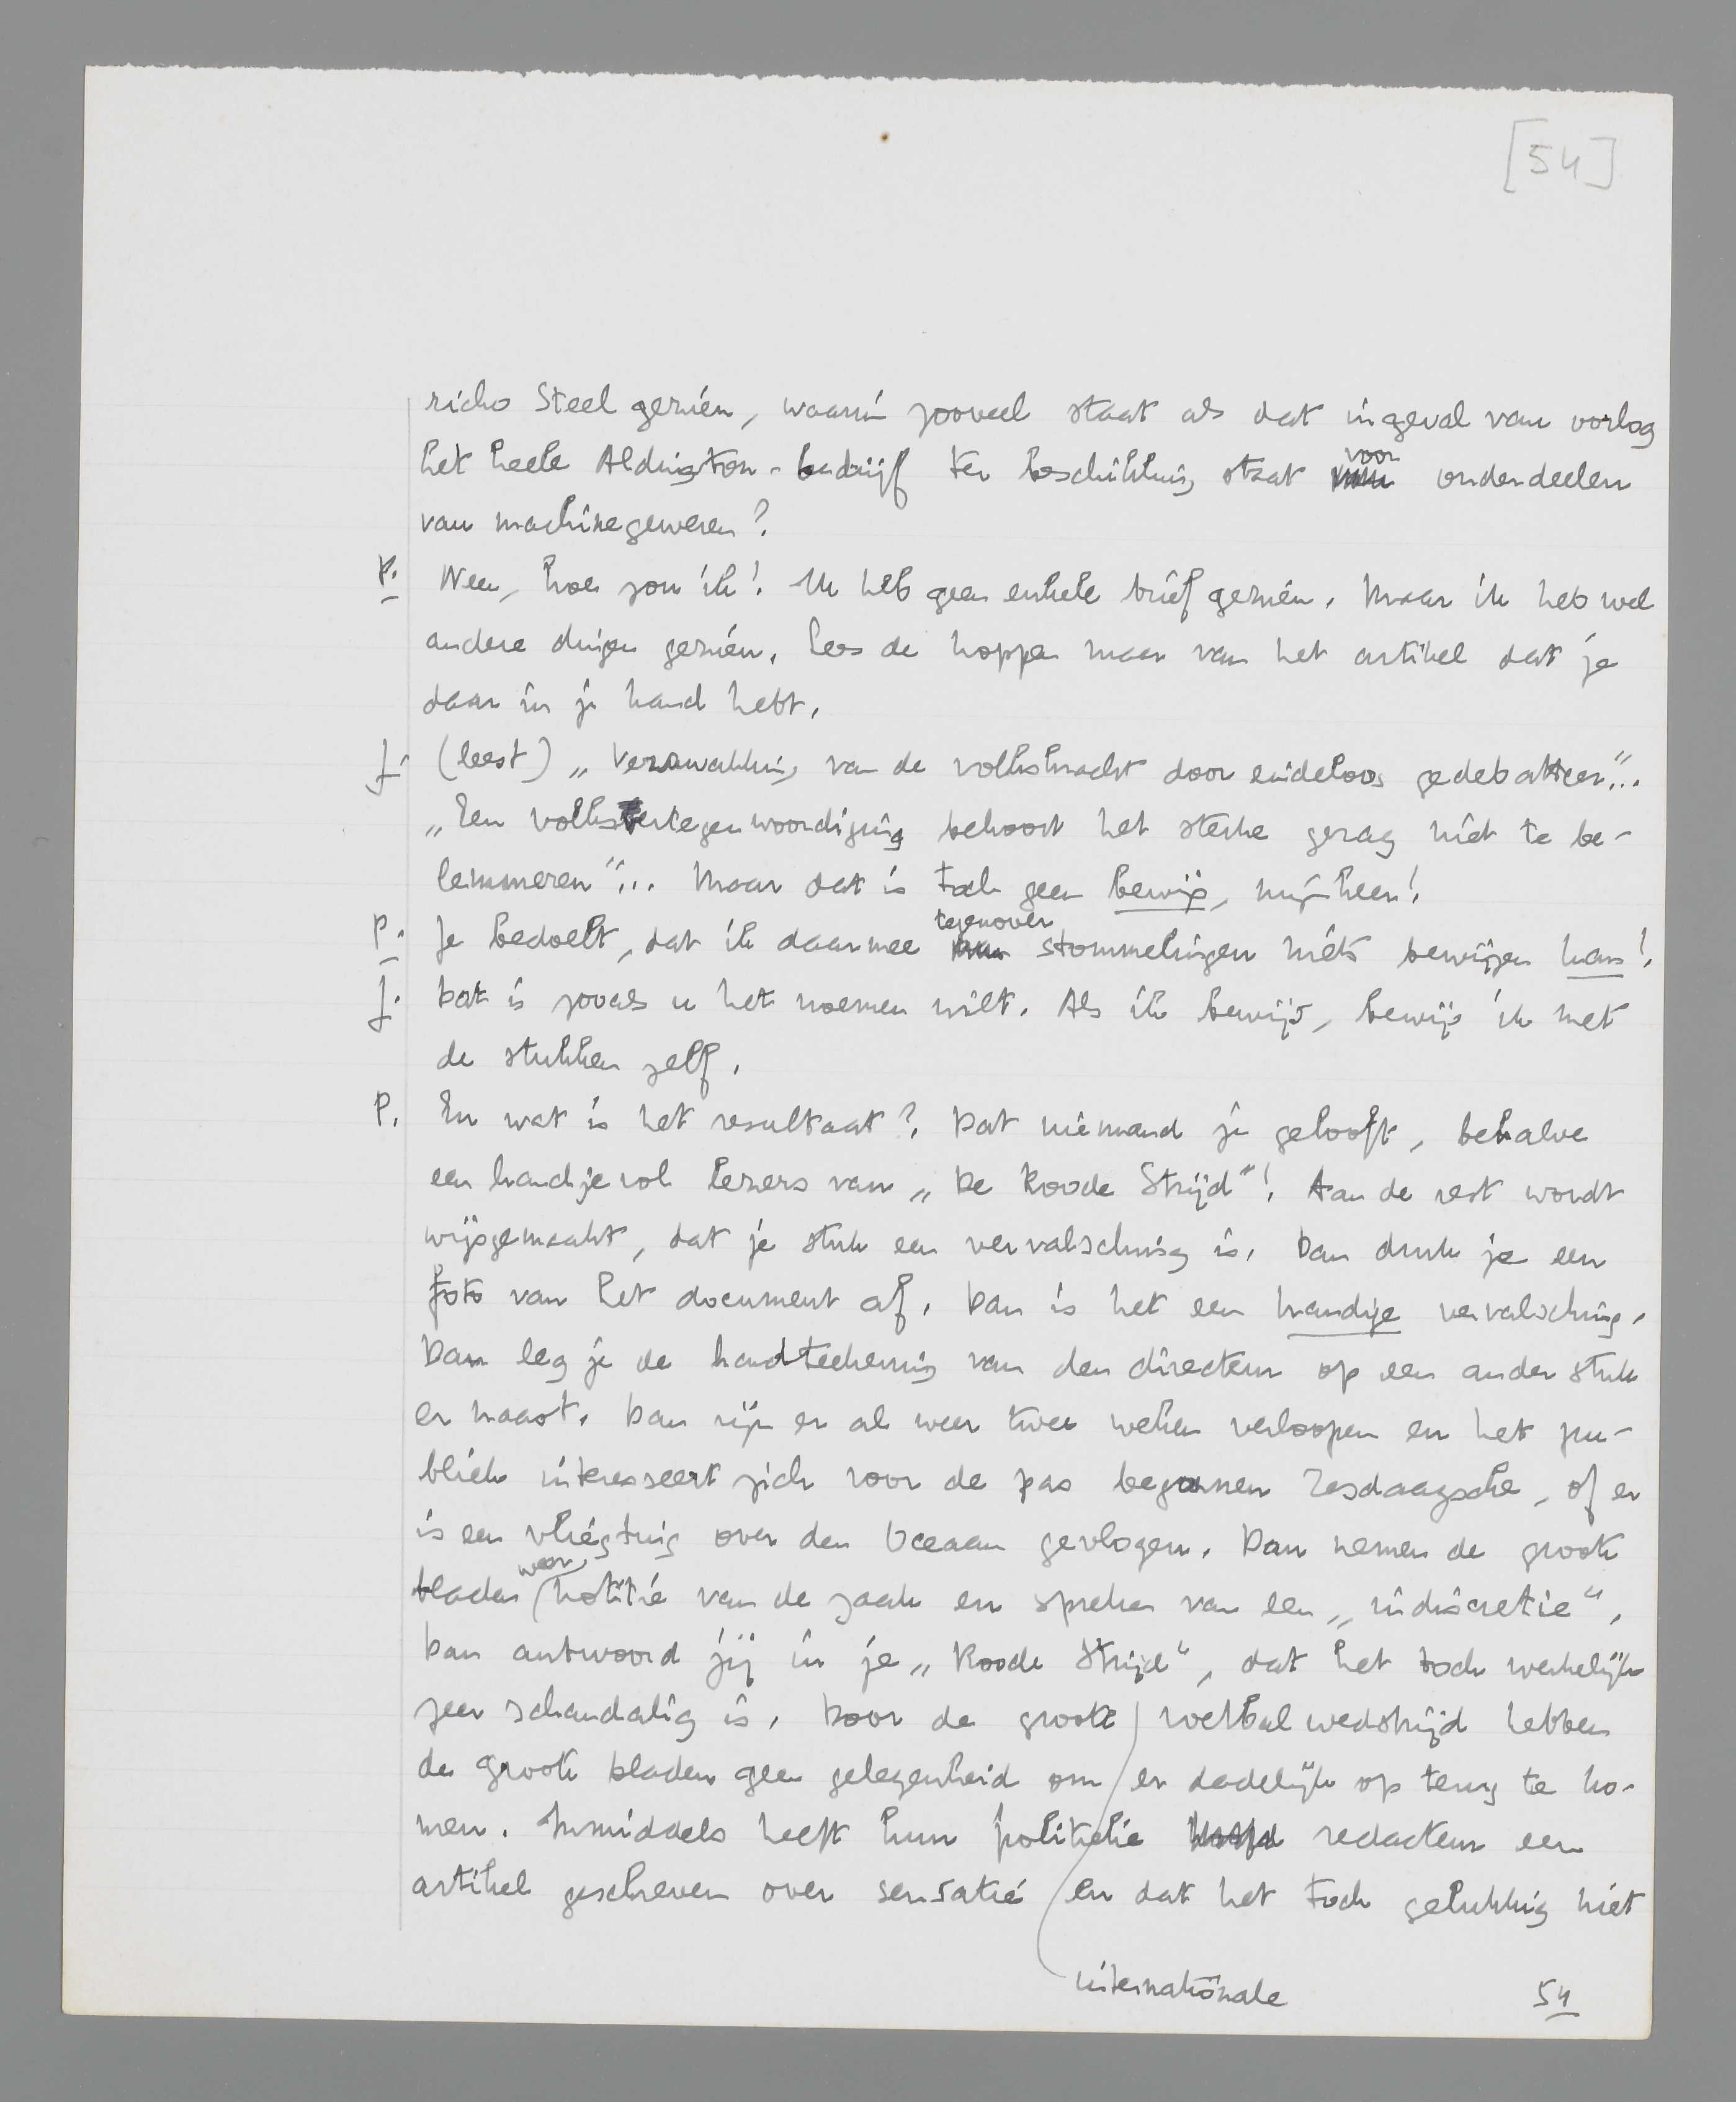 [54]
richo Steel gezien, waarin zooveel staat als dat ingeval van oorlog
het heele Aldington-bedrijf ter beschikking staat voor onderdeelen
van machinegeweren?
P. Neen, hoe zou ik! Ik heb geen enkele brief gezien. Maar ik heb wel
andere dingen gezien. Lees de koppen maar van het artikel dat je
daar in je hand hebt.
J. (leest) „Verzwakking van de volkskracht door eindeloos gedebatteer"...
„Een volksvertegenwoordiging behoort het sterke gezag niet te be-
lemmeren"... Maar dat is toch geen bewijs, mijnheer!
P. Je bedoelt, dat ik daarmee tegenover stommelingen niets bewijzen kan!
J. Dat is zooals u het noemen wilt. Als ik bewijs, bewijs ik met
de stukken zelf.
P. En wat is het resultaat? Dat niemand je gelooft, behalve
een handjevol lezers van „De Roode Strijd"! Aan de rest wordt
wijsgemaakt, dat je stuk een vervalsching is. Dan druk je een
foto van het document af. Dan is het een handige vervalsching.
Dan leg je de handteekening van den directeur op een ander stuk
er naast. Dan zijn er al weer twee weken verloopen en het pu-
bliek interesseert zich voor de pas begonnen Zesdaagsche, of er
is een vliegtuig over den Oceaan gevlogen. Dan nemen de groote
bladen weer notitie van de zaak en spreken van een „indiscretie",
Dan antwoord jij in je „Roode Strijd", dat het toch werkelijk
zeer schandalig is. Door de groote internationale voetbalwedstrijd hebben
de groote bladen geen gelegenheid om er dadelijk op terug te ko-
men. Inmiddels heeft hun politieke redacteur een
artikel geschreven over sensatie en dat het toch gelukkig niet
54